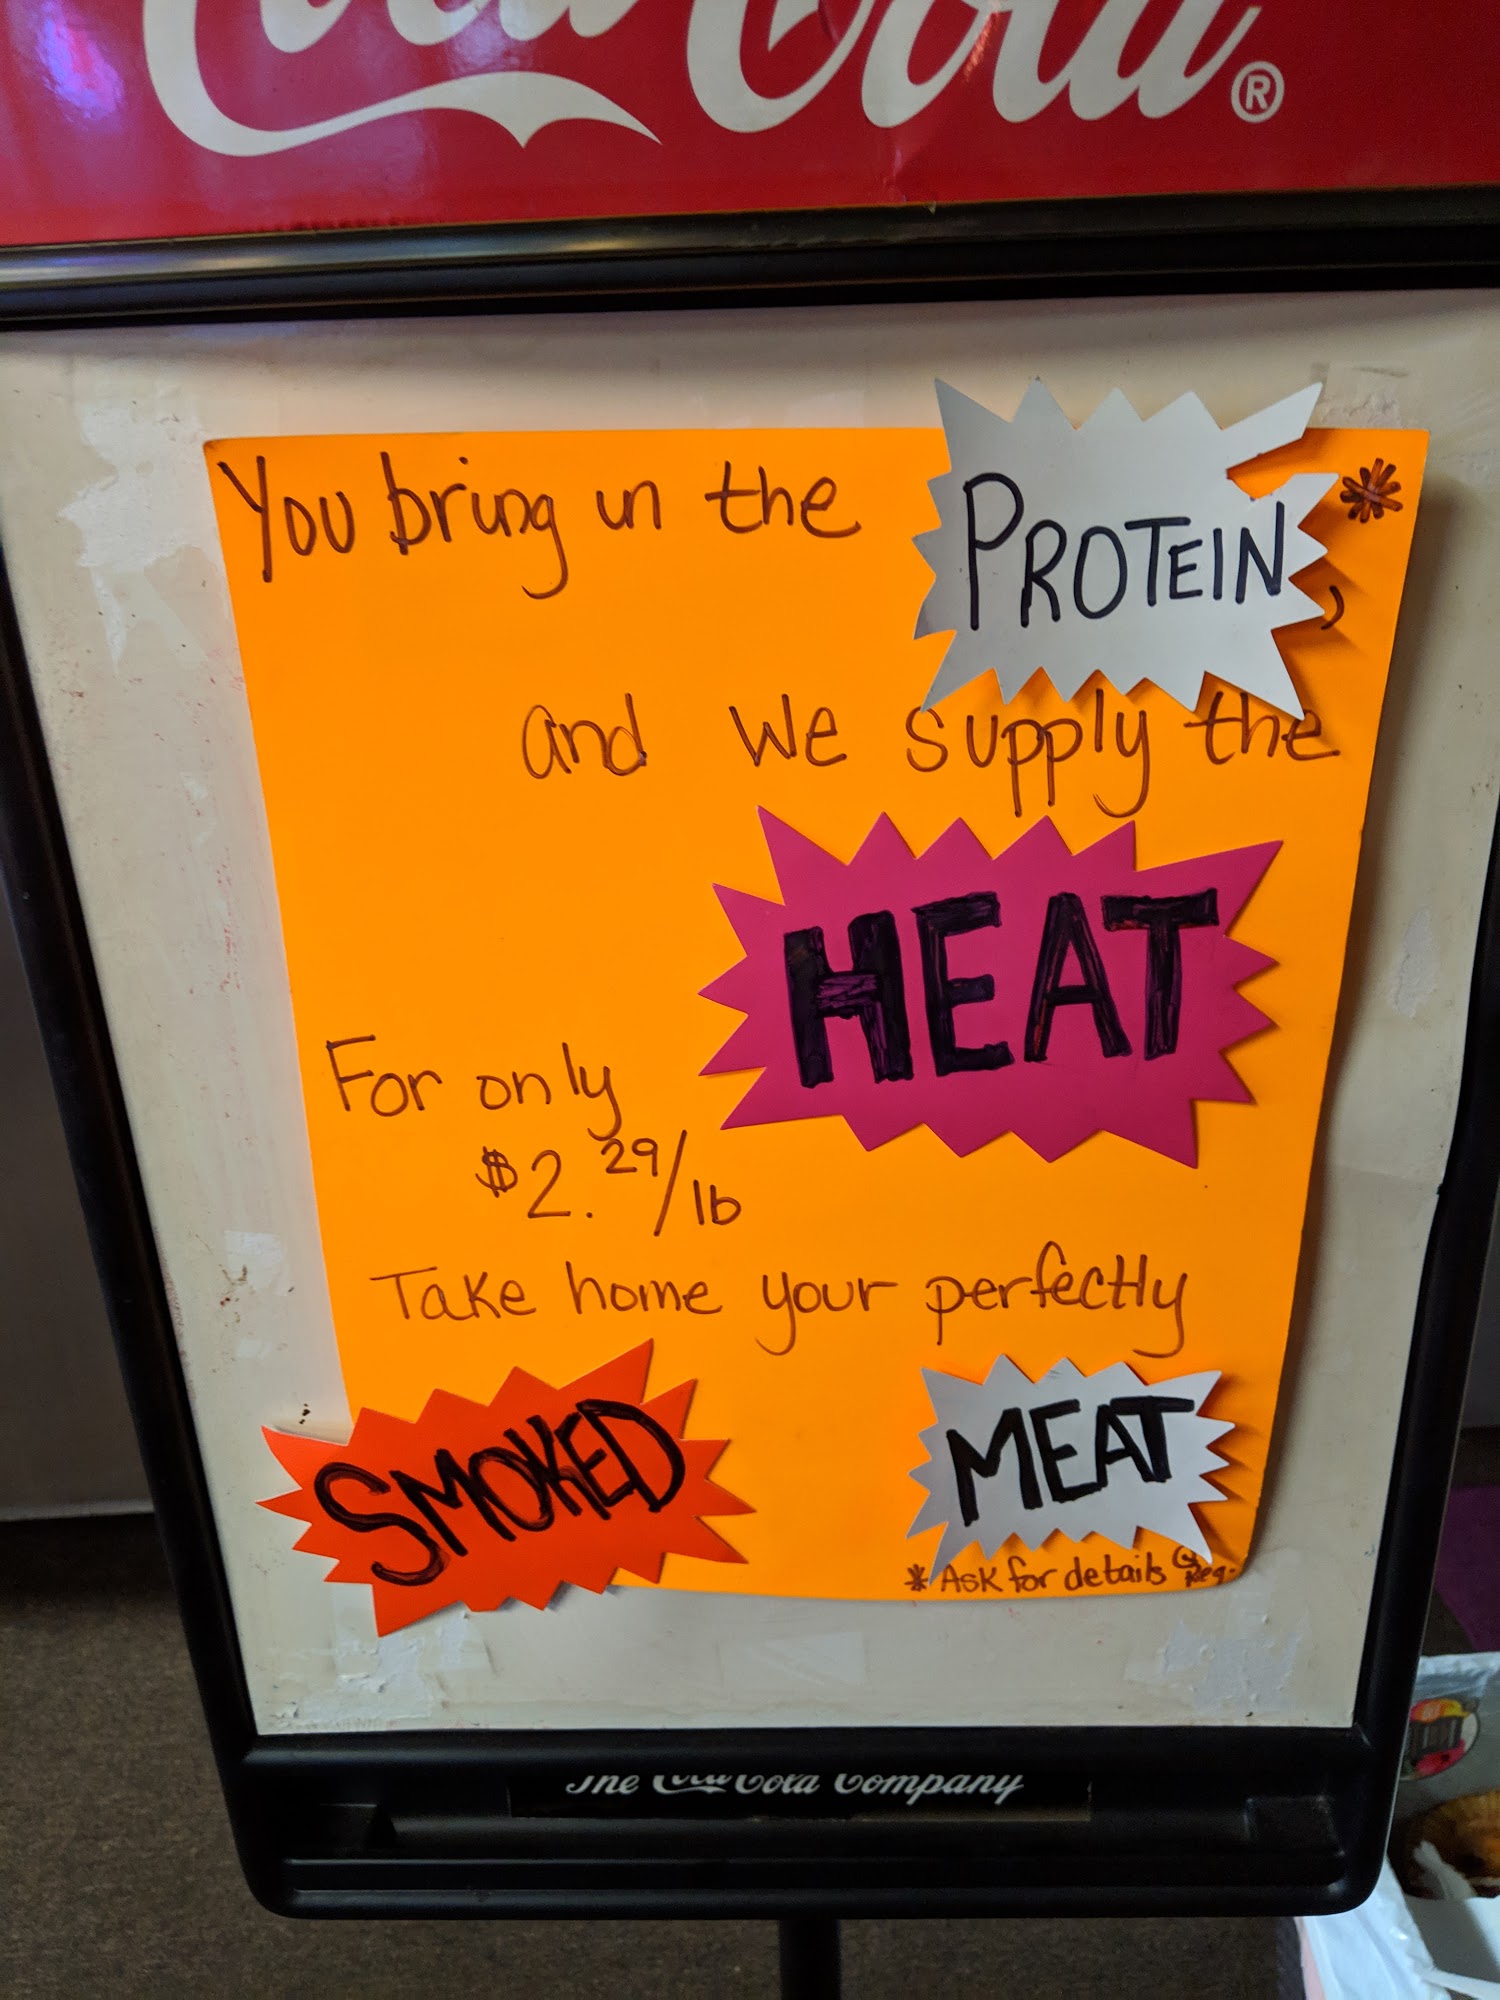 Coca-Cola®
You bring in the PROTEIN, *
and we supply the
HEAT
For only
$2.29/lb
Take home your perfectly
SMOKED MEAT
* Ask for details @ Reg.
The Coca-Cola Company